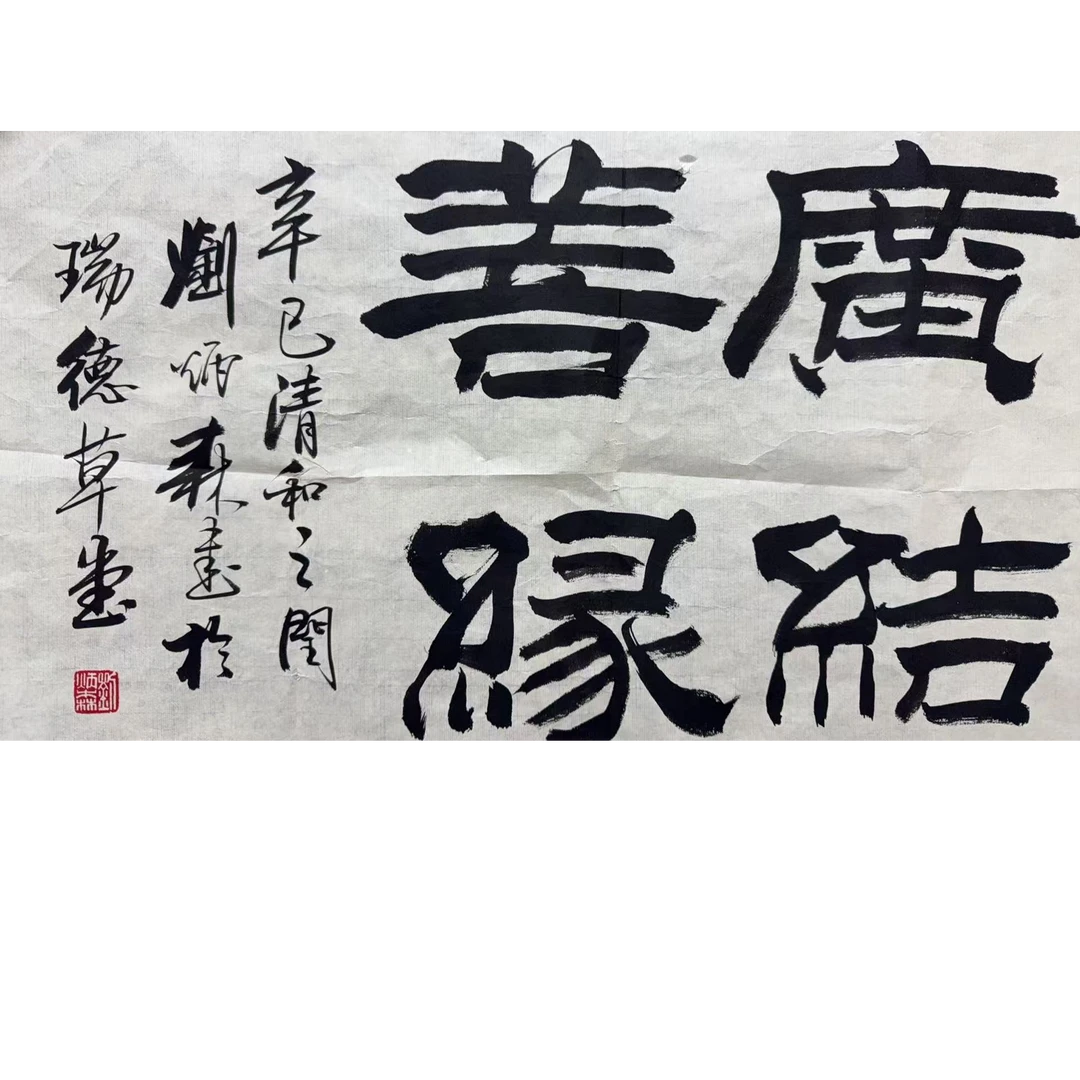 廣結
善緣
辛巳清和之閏
劉炳森書於
瑞德草堂
劉炳森